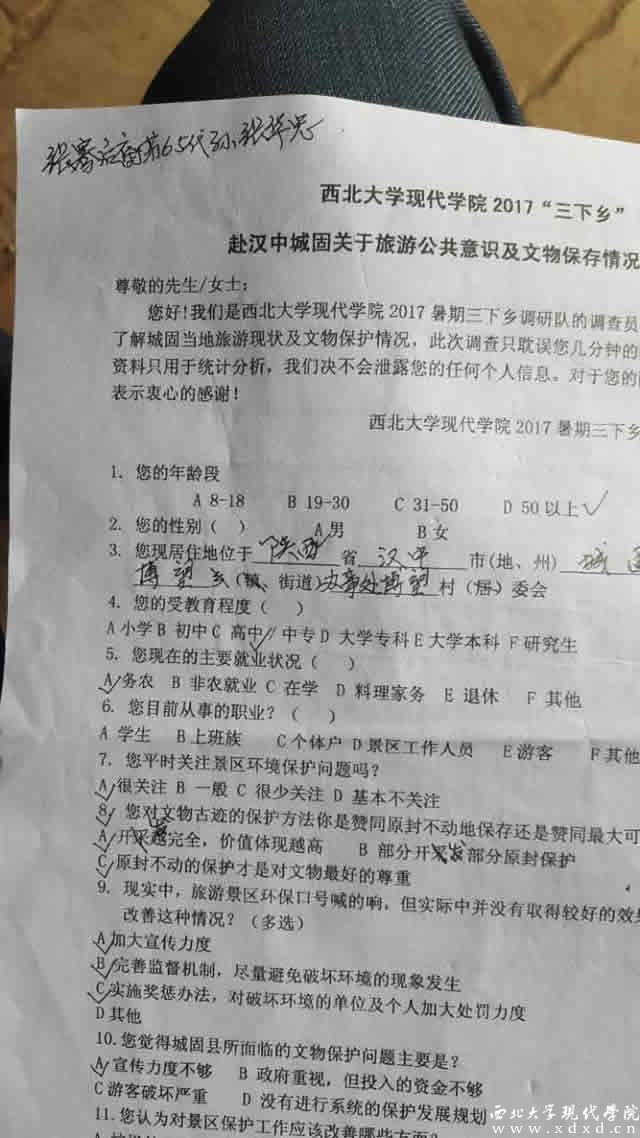 张骞后裔第65代孙张华
西北大学现代学院2017“三下乡”
赴汉中城固关于旅游公共意识及文物保存情况
尊敬的先生/女士：
您好!我们是西北大学现代学院2017暑期三下乡调研队的调查员
了解城固当地旅游现状及文物保护情况，此次调查只耽误您几分钟的
资料只用于统计分析，我们决不会泄露您的任何个人信息。对于您的
表示衷心的感谢！
西北大学现代学院2017暑期三下乡
1. 您的年龄段
A 8-18 B 19-30 C 31-50 D 50以上✓
2. 您的性别（ ） A男 B女
3. 您现居住地位于 陕西 省 汉中 市(地、州) 城
博望 (镇、街道)办事处博望 村（居）委会
4. 您的受教育程度（ ）
A小学B 初中C 高中/ 中专D 大学专科E大学本科 F研究生
5. 您现在的主要就业状况（ ）
A务农 B 非农就业 C 在学 D 料理家务 E 退休 F 其他
6. 您目前从事的职业？（ ）
A 学生 B上班族 C个体户 D景区工作人员 E游客 F其他
7. 您平时关注景区环境保护问题吗？
A很关注 B 一般 C 很少关注 D 基本不关注
8. 您对文物古迹的保护方法你是赞同原封不动地保存还是赞同最大可
A开发越完全，价值体现越高 B 部分开发部分原封保护
C原封不动的保护才是对文物最好的尊重
9. 现实中，旅游景区环保口号喊的响，但实际中并没有取得较好的效果
改善这种情况？（多选）
A加大宣传力度
B完善监督机制，尽量避免破坏环境的现象发生
C实施奖惩办法，对破坏环境的单位及个人加大处罚力度
D其他
10.您觉得城固县所面临的文物保护问题主要是？
A 宣传力度不够 B 政府重视，但投入的资金不够
C游客破坏严重 D 没有进行系统的保护发展规划
11.您认为对景区保护工作应该改善哪些方面？
西北大学现代学院
www.xdxd.cn